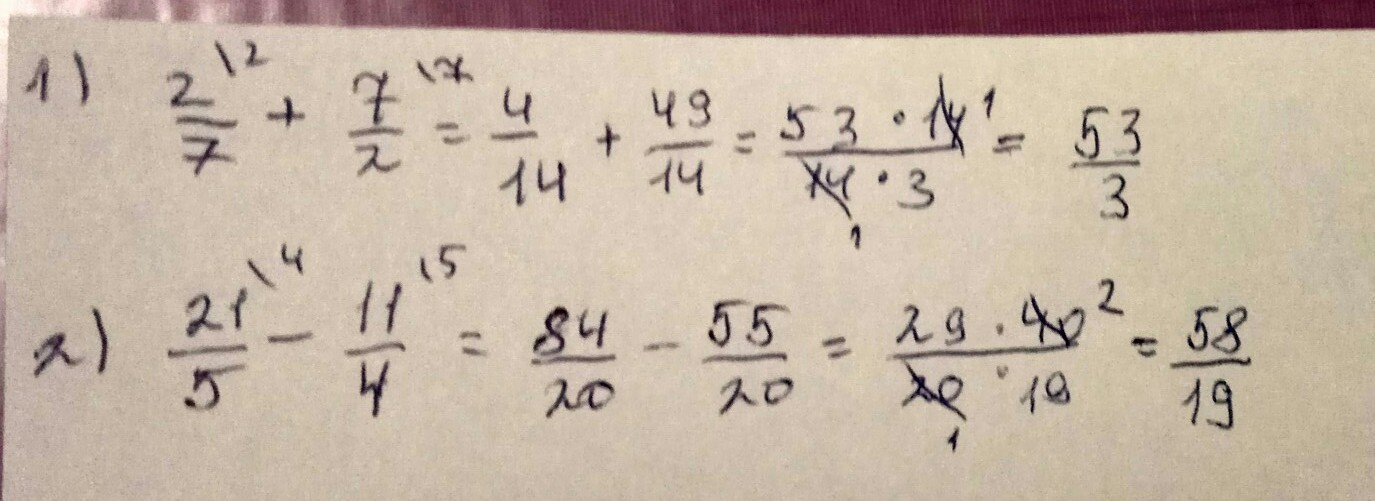 1) 2/7 \2 + 7/2 \7 = 4/14 + 49/14 = 53 · 14 1 / 14 1 · 3 = 53/3
2) 21/5 \4 - 11/4 \5 = 84/20 - 55/20 = 29 · 40 2 / 20 1 · 19 = 58/19